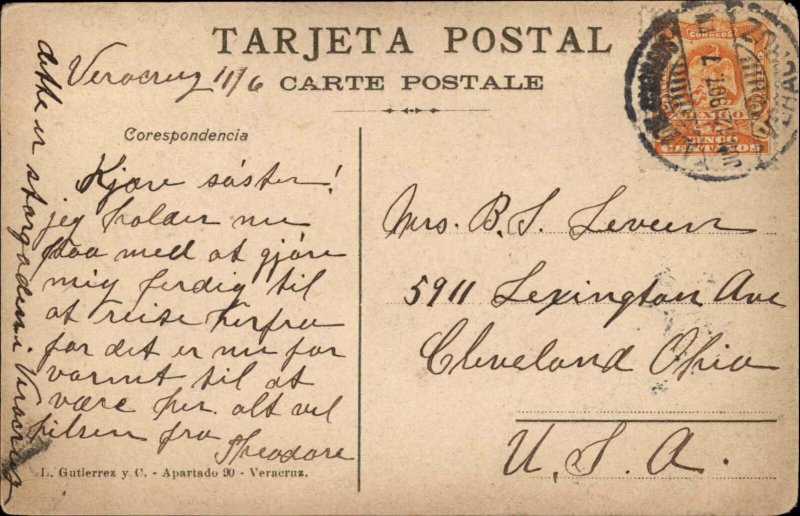 TARJETA POSTAL
CARTE POSTALE
Veracruz 11/6
Corespondencia
Kjære søster!
jeg holder nu
paa med at gjøre
mig ferdig til
at reise herfra
for det er nu for
varmt til at
være her. alt vel
hilsen fra
Theodore
L. Gutierrez y. C. - Apartado 90 - Veracruz.
dette er storgaden i Veracruz
Mrs. B. S.
5911 Lexington Ave
Cleveland Ohio
U. S. A.
CORREOS
MEXICO
CINCO
CENTAVOS